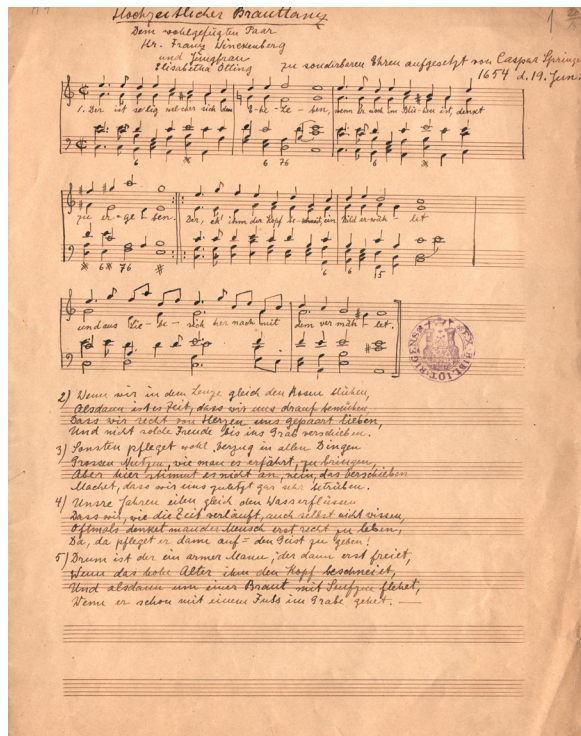 Hochzeitlicher Brauttanz
Dem wohlgefügten Paar
Hr. Franz Winckenberg
und Jungfrau
Elisabetha Otting
zu sonderbaren Ehren aufgesetzt von Caspar Springer
1654 d. 19. Jun.
1. Der ist selig welcher sich dem E-he-le-ben, wenn er noch im Blü-hen ist, denckt
6 76 6
zu er-ge-ben. Der, eh' ihm der Kopf be-schneit, ein Bild er-wäh-let
6 76 6 6 6 15
und aus Lie-be sich her-nach mit dem ver-mäh-let.
EX BIBLIOT. RIGENS
2) Wenn wir in dem Lenze gleich den Rosen blühen,
Alsdann ist es Zeit, dass wir uns drauf bemühen,
Dass wir recht von Herzen uns gepaart lieben,
Und nicht solche Freude bis ins Grab verschieben.
3) Sonsten pfleget wohl Verzug in allen Dingen
Grossen Nutzen, wie man es erfährt, zu bringen,
Aber hier stimmt es nicht an, nein, das Verschieben
Machet, dass wir uns zuletzt gar sehr betrüben.
4) Unsre Jahren eilen gleich den Wasserflüssen
Dass wir, wie die Zeit verläuft, auch selbst nicht wissen,
Oftmals denket mancher Mensch erst recht zu leben,
Da, da pfleget er dann auf = den Geist zu geben!
5) Drum ist der ein armer Mann, der dann erst freiet,
Wenn das hohe Alter ihm den Kopf beschneiet,
Und alsdann um einer Braut mit Seufzen flehet,
Wenn er schon mit einem Fuss im Grabe gehet. —